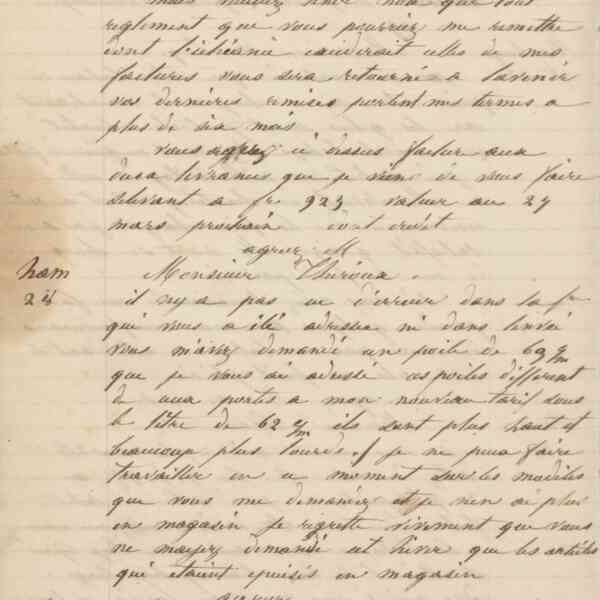 règlement que vous pourriez me remettre
dont l'échéance excéderait celles de mes
factures vous sera retourné a l'avenir
vos dernières remises portent mes termes a
plus de six mois
vous ci dessus facture aux
deux livraisons que je viens de vous faire
s'élevant a fr 923 valeur au 27
mars prochain dont crédit
agréez M
ham Monsieur Théroux.
28 il n'y a pas eu d'erreur dans la fre
qui vous a été adressée ni dans l'envoi
vous m'avez demandé un poile de 62 c/m
que je vous ai adressé ces poiles diffèrent
de ceux portés a mon nouveau tarif sous
le titre de 62 c/m ils sont plus haut et
beaucoup plus lourds. je ne puis faire
travailler en ce moment sur les modèles
que vous me demandez et je n'en ai plus
en magasin je regrette vivement que vous
ne m'ayez demandé cet hiver que les articles
qui étaient épuisés en magasin